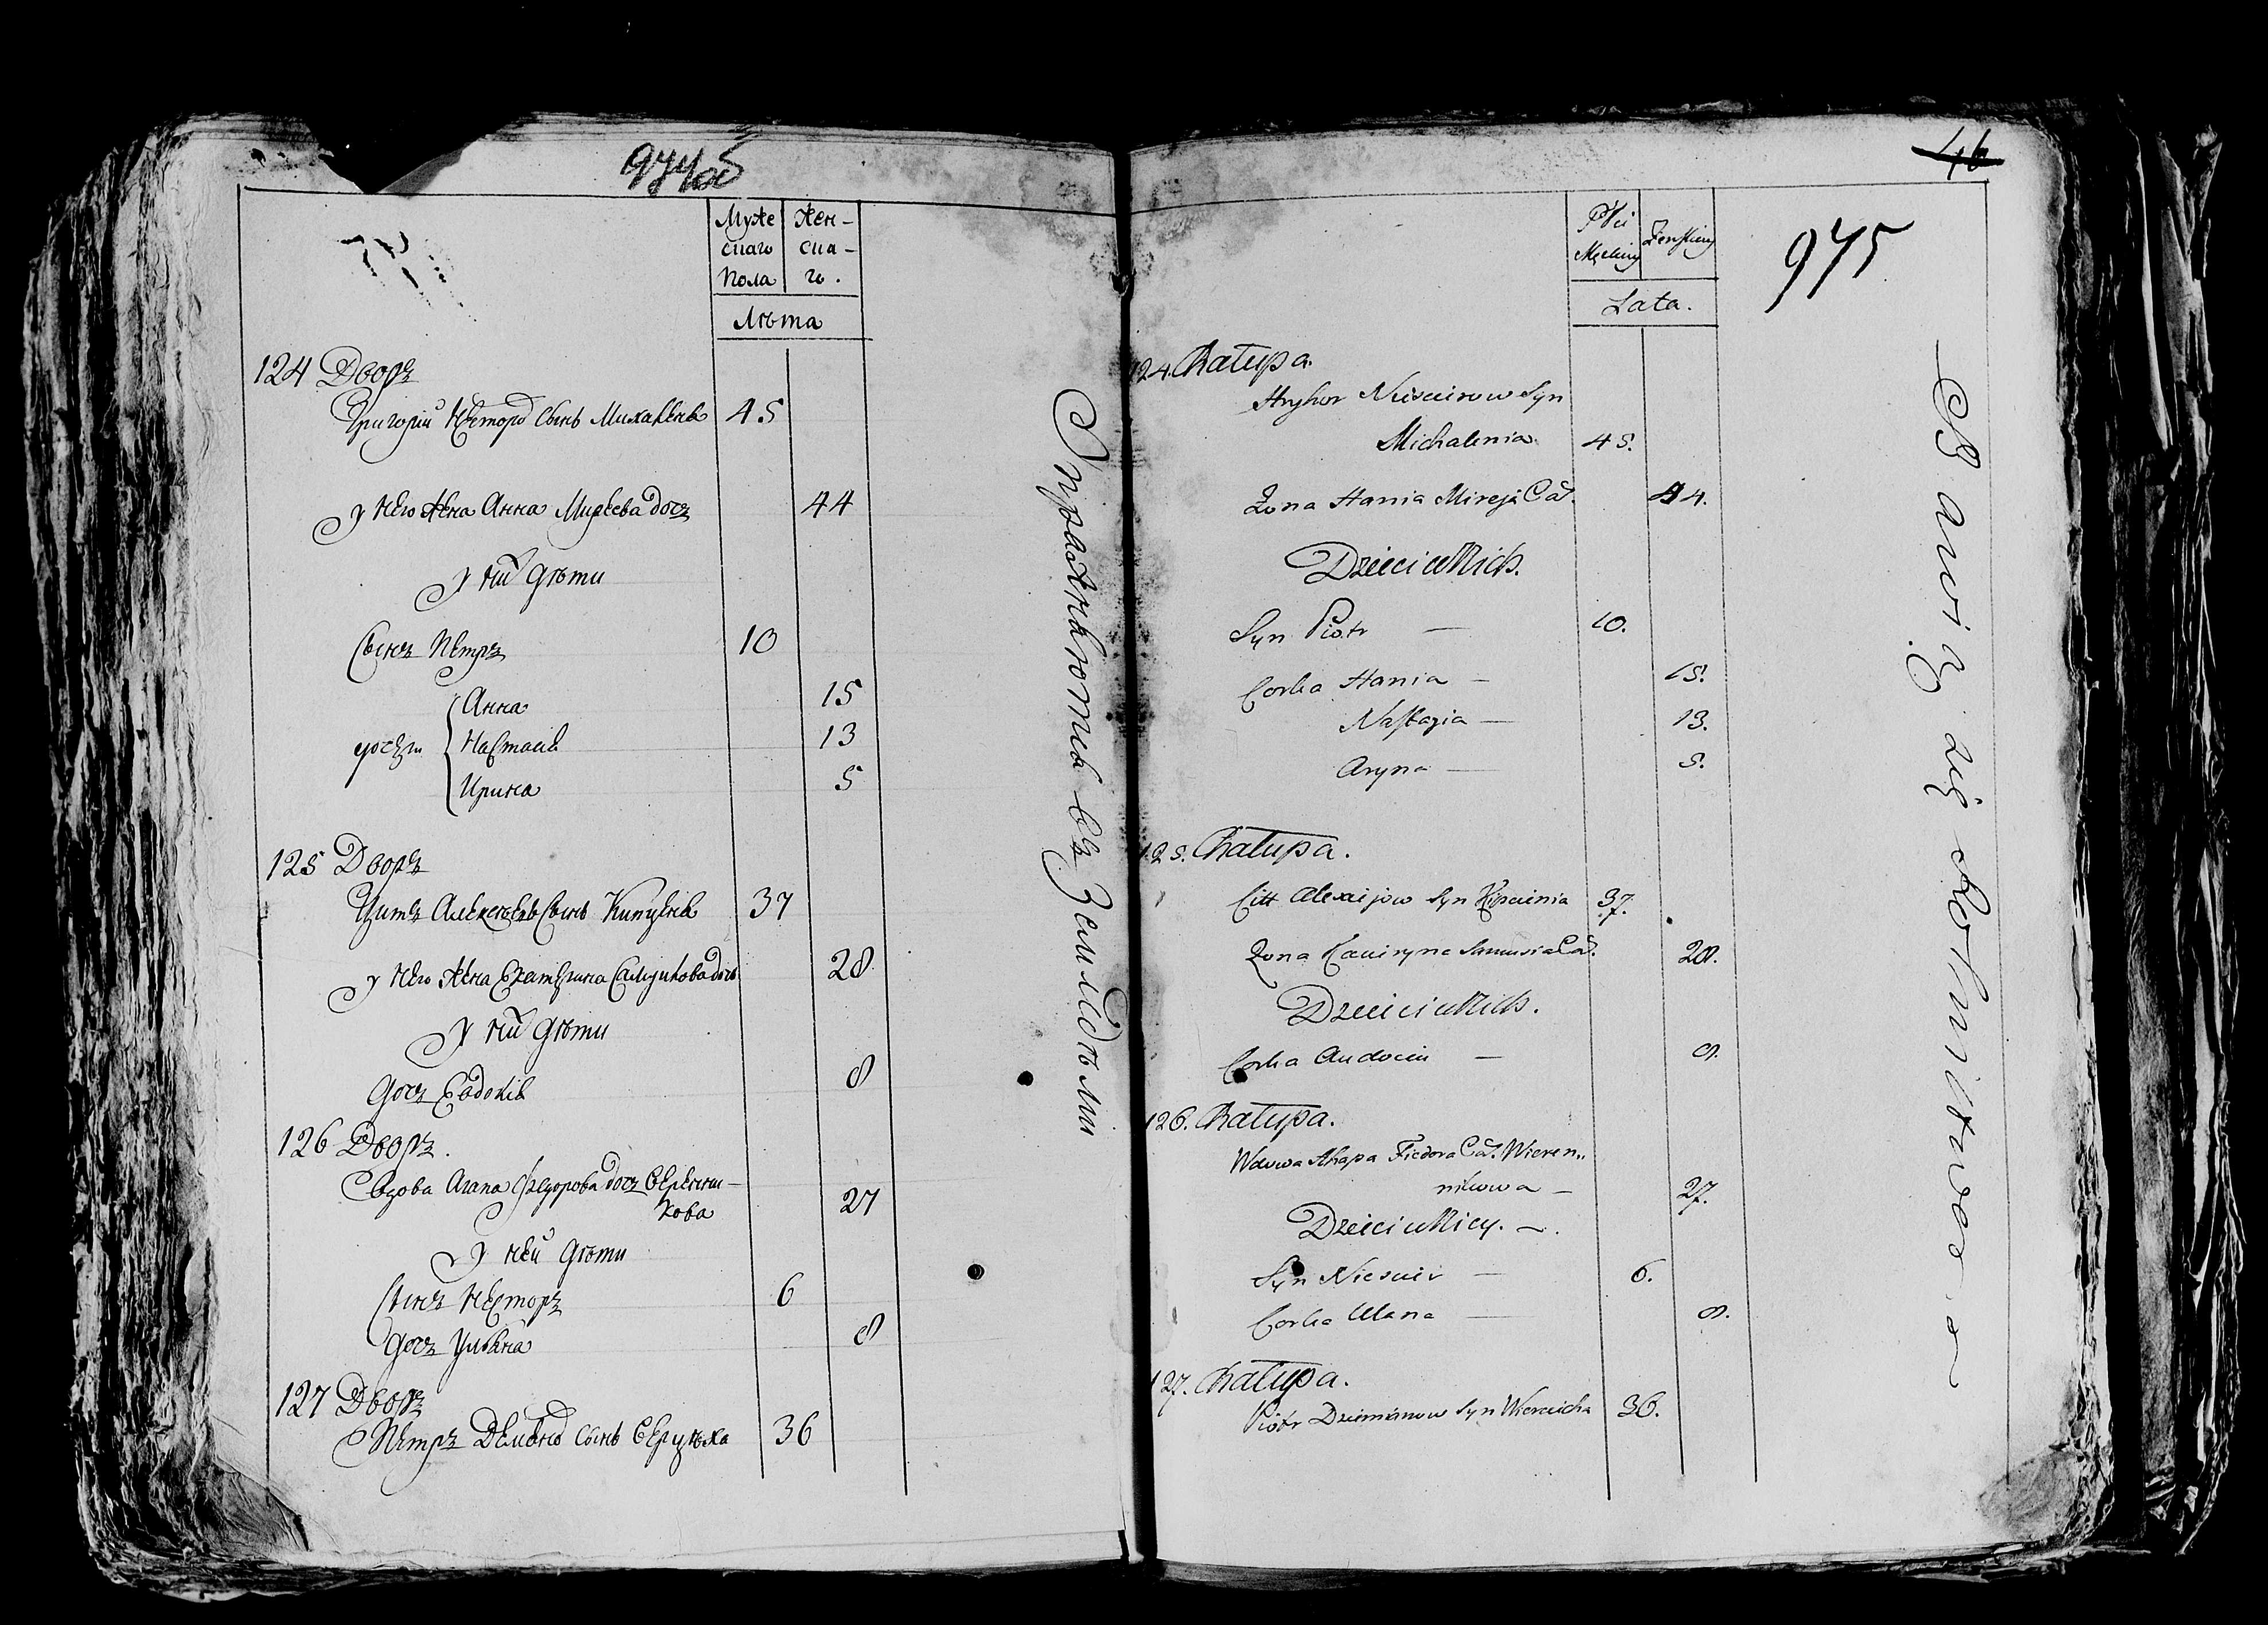 974об
Муже Жен-
скаго ска-
Пола го.
Лѣта
124 Дворъ
Григорій Несторо сынъ Михаленя 45
У него жена Анна Миреева дочъ 44
У ни дѣти
Сынъ Петръ 10
Анна 15
дочери Настасія 13
Ирина 5
125 Дворъ
Титъ Алексеевъ сынъ 37
У него жена Екатерина дочъ 28
У ни дѣти
дочъ Евдокія 8
126 Дворъ.
Вдова Агапа Федорова дочъ Веренни-
кова 27
У ней дѣти
Сынъ Несторъ 6
дочъ Ульяна 8
127 Дворъ
Петръ Демянов сынъ Верцѣха 36
Упражняютсь въ Земледѣлии
46
975
Płci
Męskiey Żenskiey
Lata.
124. Chałupa.
Hryhor Niescirow Syn
Michalenia 45.
Żona Hania Mireja Cór. 44.
Dzieci u Nich.
Syn Piotr — 10.
Corka Hania — 15.
Nastazia — 13.
Aryna — 5.
125. Chałupa.
Citt Alexiejow Syn 37.
Żona Kaciryna Samusia Cór. 28.
Dzieci u Nich.
Corka Audocia — 8.
126. Chałupa.
Wdowa Ahapa Fiedora Cór. Wieren„
nikowa — 27.
Dzieci u Niey. —.
Syn Niescir — 6.
Corka Ulana — 8.
127. Chałupa.
Piotr Dziemianow Syn Wierciicha 36.
Bawią się Rolnictwem